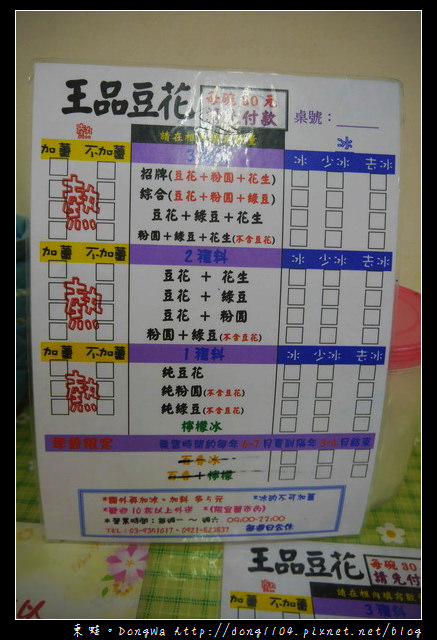 王品豆花
每碗30元
請先付款
桌號：
熱 冰
加薑 不加薑 3種料 冰 少冰 去冰
招牌(豆花＋粉圓＋花生)
綜合(豆花＋粉圓＋綠豆)
豆花＋綠豆＋花生
粉圓＋綠豆＋花生(不含豆花)
熱
加薑 不加薑 2種料 冰 少冰 去冰
豆花 ＋ 花生
豆花 ＋ 綠豆
豆花 ＋ 粉圓
粉圓＋綠豆(不含豆花)
熱
加薑 不加薑 1種料 冰 少冰 去冰
純豆花
純粉圓(不含豆花)
純綠豆(不含豆花)
檸檬冰
熱
季節限定
百香冰
百香＋檸檬
*額外再加冰、加料 多5元 *冰品不可加薑
*營業時間：每週一～週六 09:00-22:00
TEL：03-9351617、0921-823837 每週日公休
王品豆花
每碗30
請先付
3種料
東蛙。DongWa http://dong1104.pixnet.net/blog